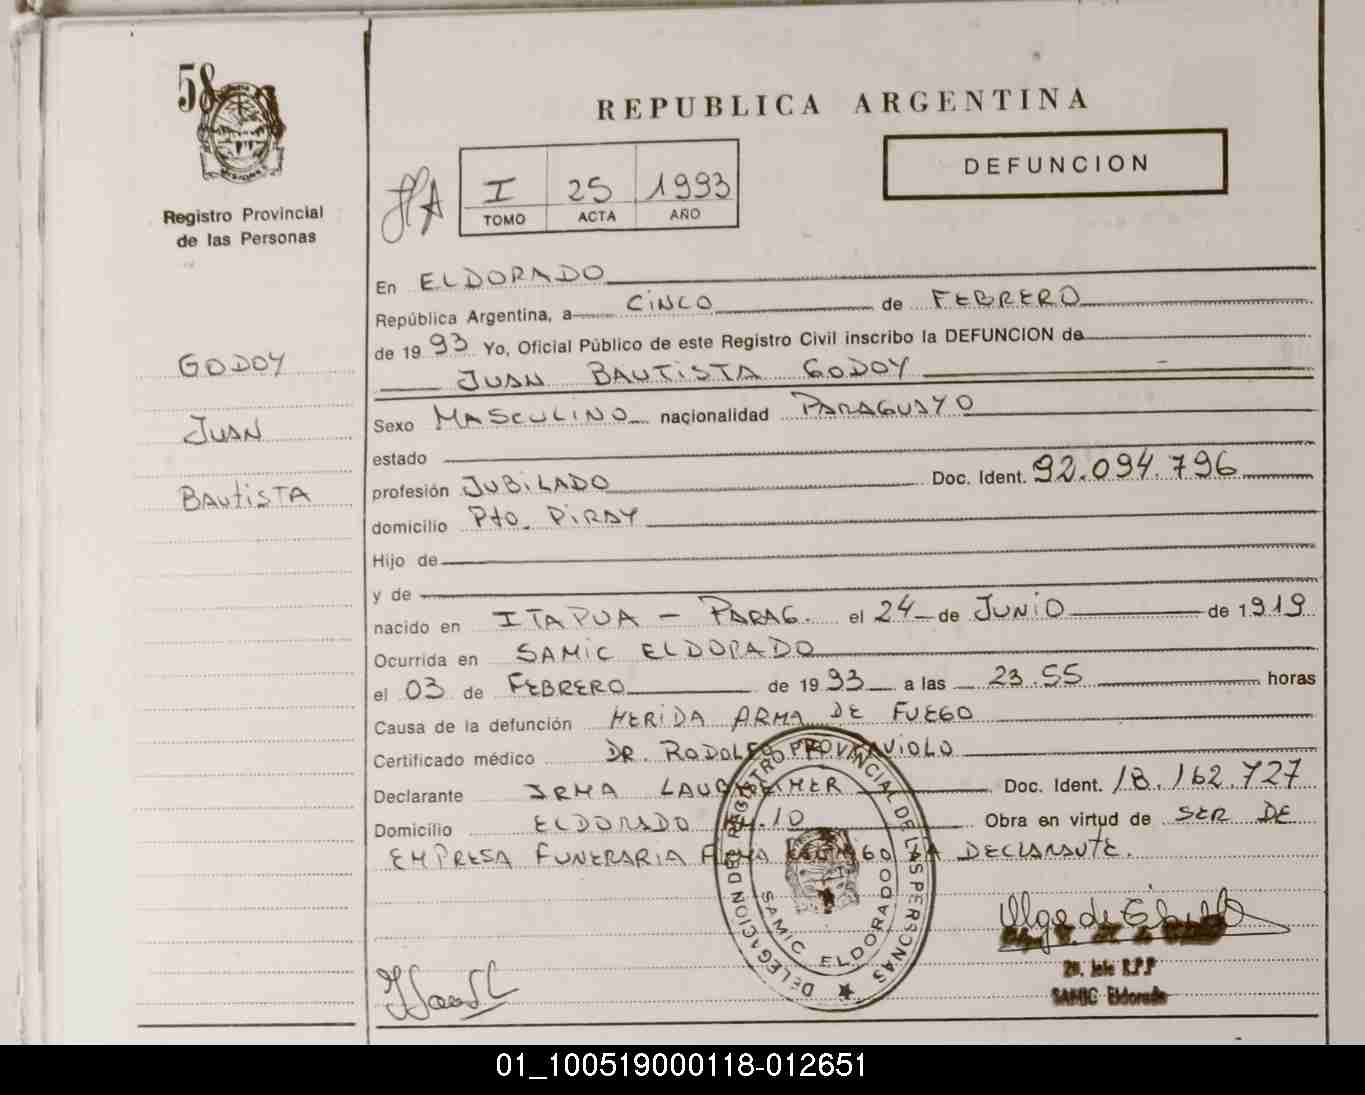 58
REPUBLICA ARGENTINA
DEFUNCION
I 25 1993
TOMO ACTA AÑO
Registro Provincial
de las Personas
GODOY
JUAN
BAUTISTA
En ELDORADO
República Argentina, a CINCO de FEBRERO
de 1993 Yo, Oficial Público de este Registro Civil inscribo la DEFUNCION de
JUAN BAUTISTA GODOY
Sexo MASCULINO nacionalidad PARAGUAYO
estado
profesión JUBILADO Doc. Ident. 92.094.796
domicilio Pto. PIRAY
Hijo de
y de
nacido en ITAPUA - PARAG. el 24 de JUNIO de 1919
Ocurrida en SAMIC ELDORADO
el 03 de FEBRERO de 1993 a las 23.55 horas
Causa de la defunción HERIDA ARMA DE FUEGO
Certificado médico DR. RODOLFO
Declarante IRMA Doc. Ident. 18.162.727
Domicilio ELDORADO .10 Obra en virtud de SER DE
EMPRESA FUNERARIA FIRMA LA DECLARANTE.
DELEGACION DEL REGISTRO PROVINCIAL DE LAS PERSONAS
SAMIC ELDORADO
Olga de
SAMIC Eldorado
01_100519000118-012651